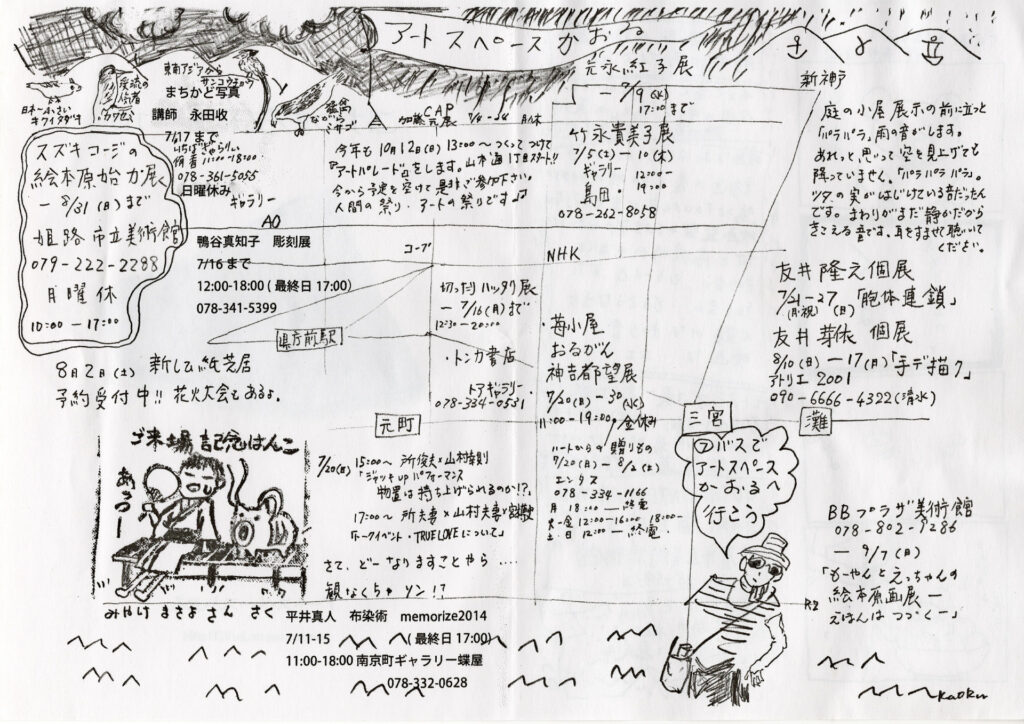 アートスペースかおる
元永紅子展
ー7/9(水)
17:00まで
新神戸
渓流の
日本一小さい
キクイタダキ
カワセミ
東南アジアから
サンコウチョウ
まちかど写真
講師 永田収
7/17まで
いちばぎゃらりぃ
侑香 11:00-18:00
078-361-5055
日曜休み
ギャラリー
AO
猛禽
ながら
ミサゴ
CAP
加藤元展
月休
今年も10月12日(日)13:00〜つくってつけて
「アートパレード」をします。山本通1丁目スタート!!
今から予定を空けて是非ご参加下さい。
人間の祭り・アートの祭りです♪
竹永貴美子展
7/5(土)ー10(木)
ギャラリー
島田
12:00ー
19:00
078-262-8058
庭の小屋展示の前に立つと
「パラパラ」雨の音がします。
あれっ、と思って空を見上げても
降っていません。「パラパラパラ」。
ツタの実がはじけている音だったん
です。まわりがまだ静かだから
きこえる音です。耳をすませて聴いて
ください。
スズキコージの
絵本原始力展
ー8/31(日)まで
姫路市立美術館
079-222-2288
月曜休
10:00ー17:00
鴨谷真知子 彫刻展
7/16まで
12:00-18:00(最終日17:00)
078-341-5399
コープ
NHK
切ったりハッタリ展
ー7/16(月)まで
12:30ー20:00
県庁前駅
・トンカ書店
トアギャラリー
078-334-0531
・苺小屋
おるがん
神吉都望展
7/20(日)ー30(水)
11:00ー19:00 昼休み
友井隆元個展
7/21ー27「胞体連鎖」
(月・祝)(日)
友井芽依 個展
8/10(日)ー17(日)「手デ描ク」
アトリエ2001
090-6666-4322(清水)
8月2日(土) 新しい紙芝居
予約受付中!! 花火大会もあるよ。
元町
三宮
灘
ご来場記念はんこ
あぅー
みやけまさよさん さく
7/20(日) 15:00〜所俊夫×山村幸則
「ジャッキupパフォーマンス
物置は持ち上げられるのか!?」
17:00〜所夫妻×山村夫妻×
「トークイベント・TRUE LOVEについて」
さて、どーなりますことやら‥‥
観なくちゃソン!?
ハートからの贈りもの
7/20(日)ー8/2(土)
エンタス
078-334-1166
月 18:00ー終電
火ー金 12:00ー16:00 18:00ー
土・日 12:00ー終電
⑦バスで
アートスペース
かおるへ
行こう
BBプラザ美術館
078-802-9286
ー9/7(日)
「もーやんとえっちゃんの
絵本原画展ー
えほんはつづくー」
R2
平井真人 布染術 memorize2014
7/11-15 (最終日17:00)
11:00-18:00 南京町ギャラリー蝶屋
078-332-0628
kaoru